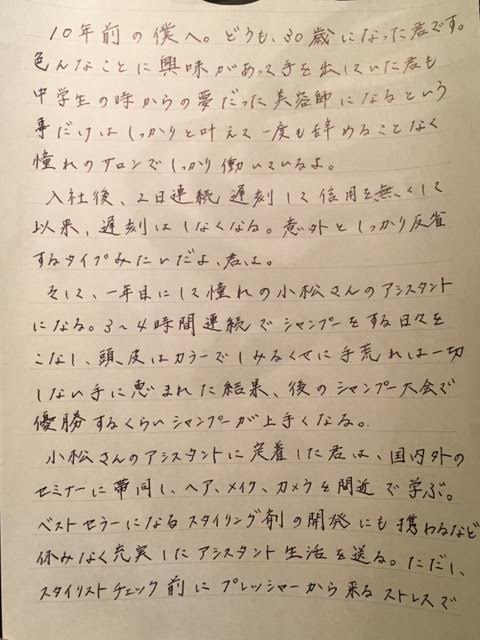 10年前の僕へ。どうも、30歳になった君です。
色んなことに興味があって手を出していた君も
中学生の時からの夢だった美容師になるという
事だけはしっかりと叶えて一度も辞めることなく
憧れのサロンでしっかり働いているよ。
入社後、2日連続遅刻して信用を無くして
以来、遅刻はしなくなる。意外としっかり反省
するタイプみたいだよ、君は。
そして、一年目にして憧れの小松さんのアシスタント
になる。3〜4時間連続でシャンプーをする日々を
こなし、頭皮はカラーでしみるくせに手荒れは一切
しない手に恵まれた結果、後のシャンプー大会で
優勝するくらいシャンプーが上手くなる。
小松さんのアシスタントに定着した君は、国内外の
セミナーに帯同し、ヘア、メイク、カメラを間近で学ぶ。
ベストセラーになるスタイリング剤の開発にも携わるなど
休みなく充実したアシスタント生活を送る。ただし、
スタイリストチェック前にプレッシャーから来るストレスで